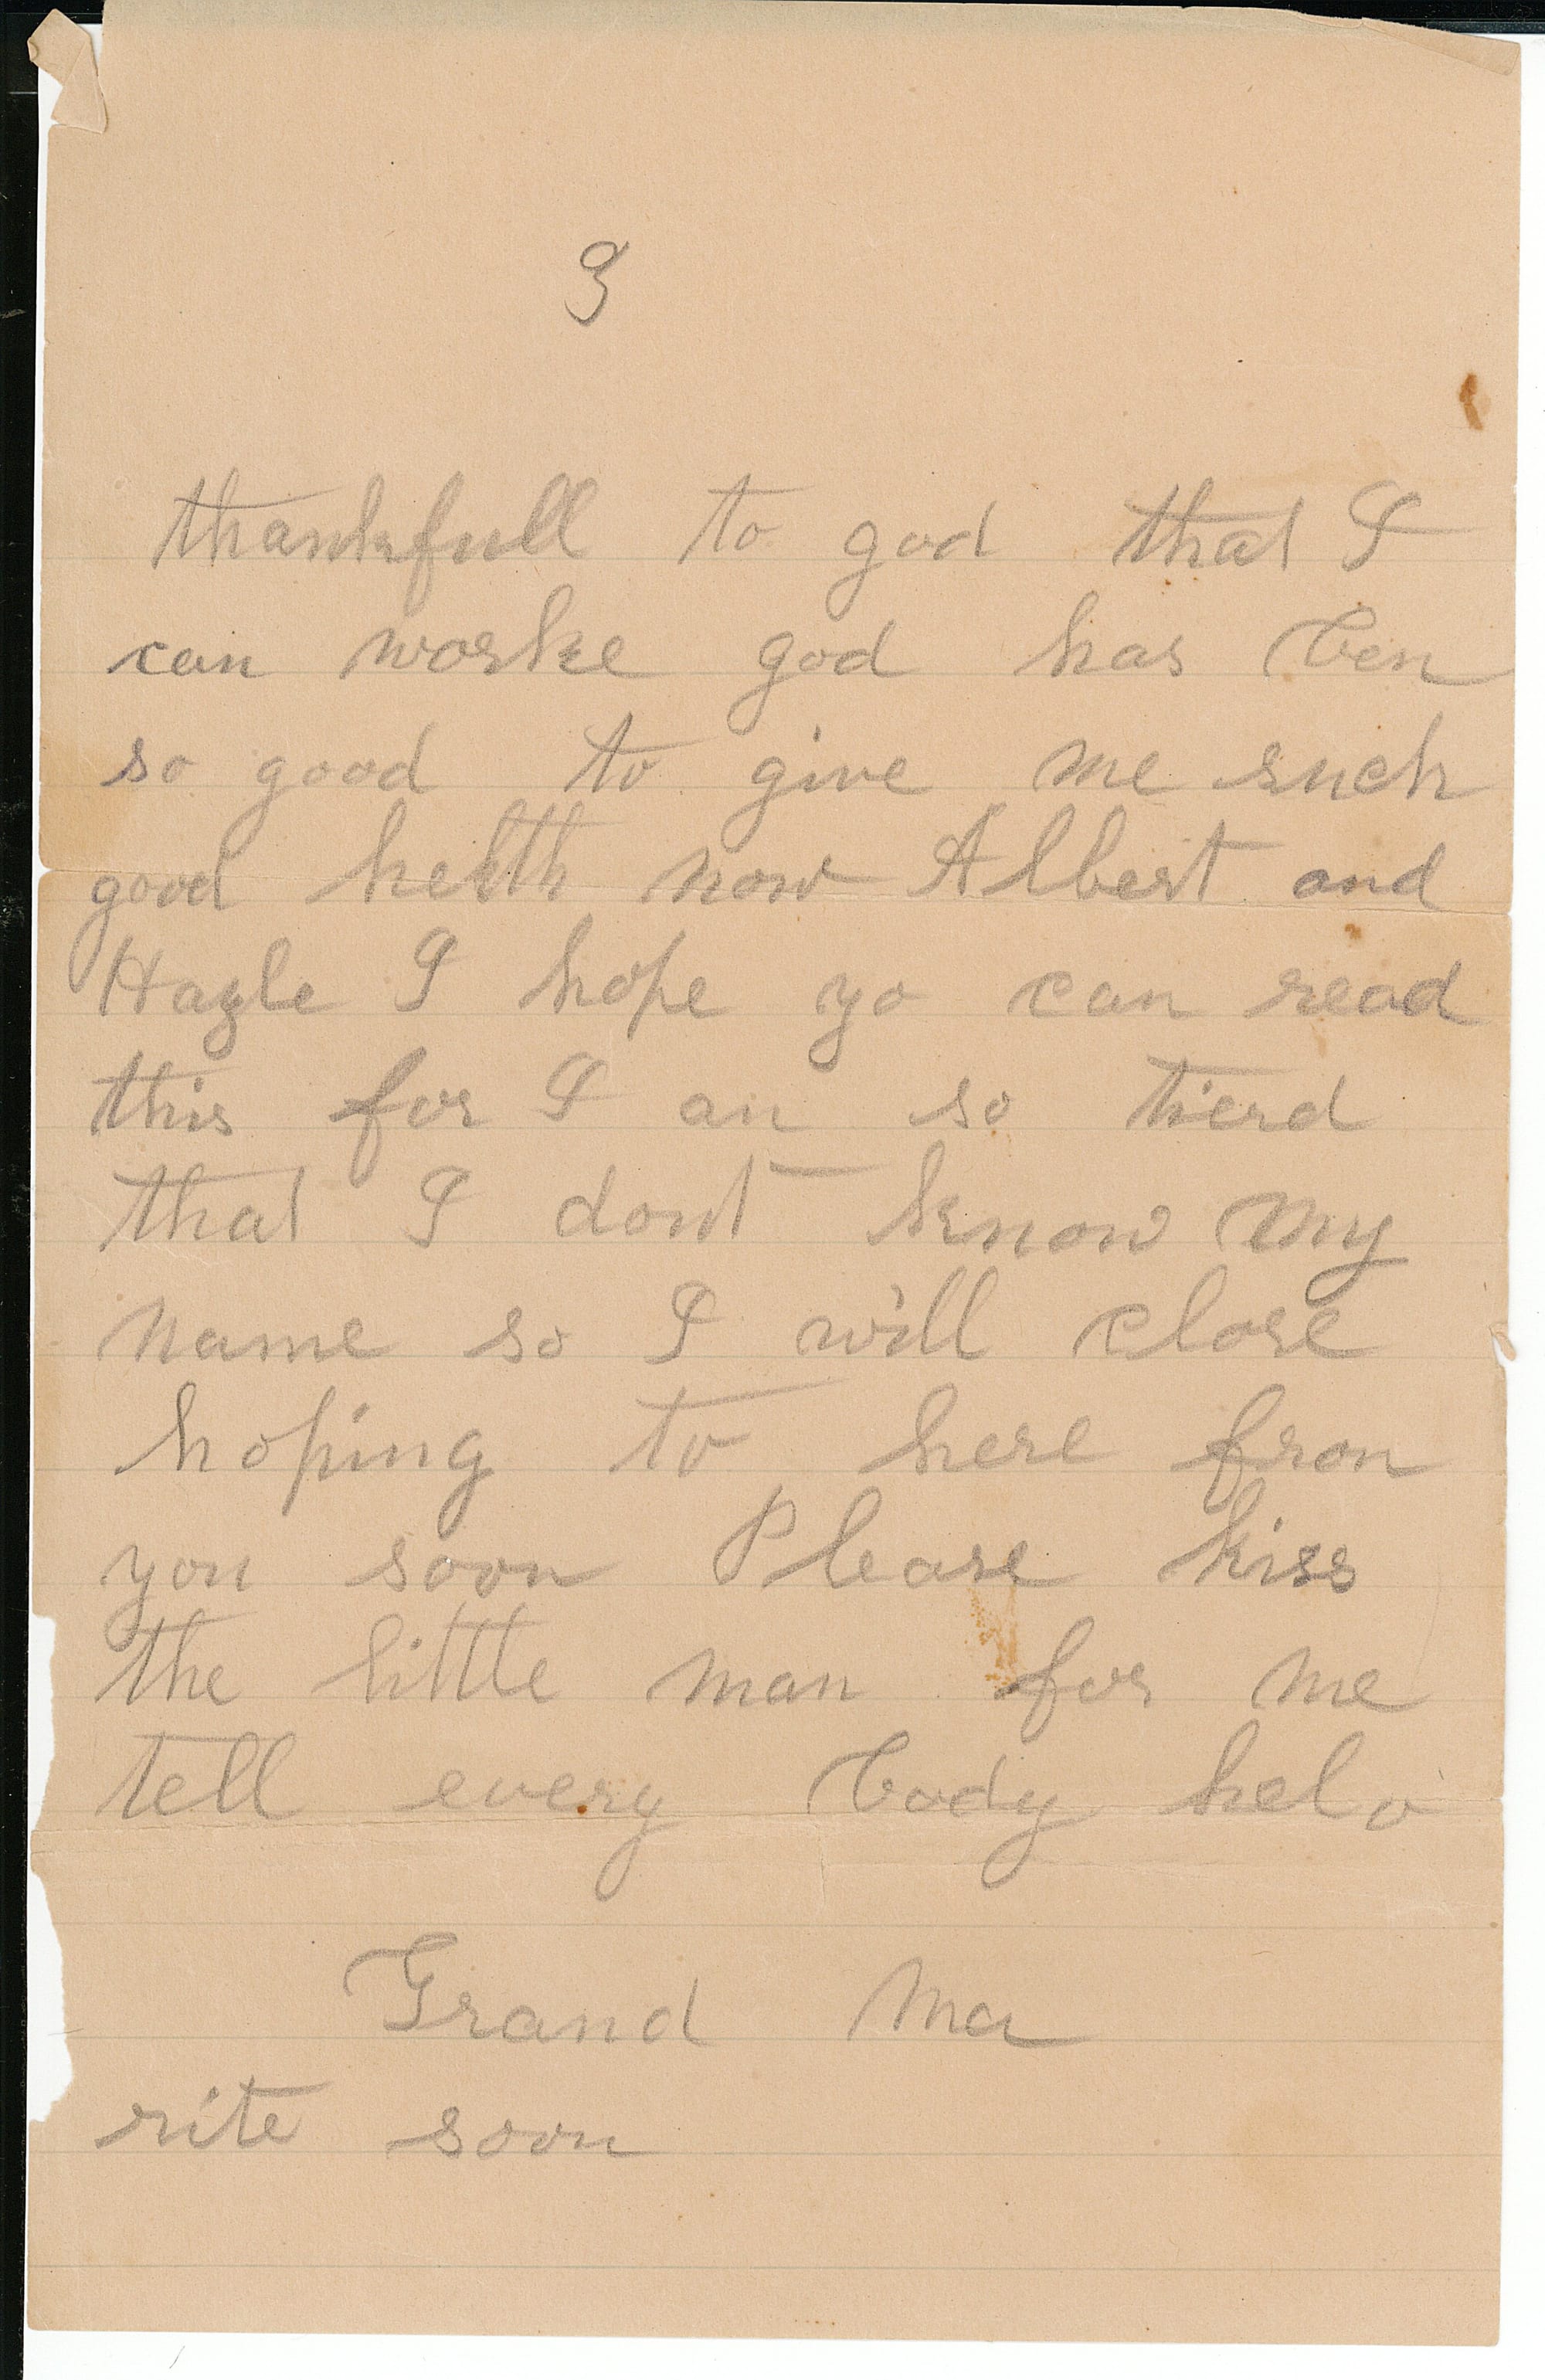 3
thankfull to god that I
can worke god has ben
so good to give me such
good helth now Albert and
Hazle I hope yo can read
this for I an so tierd
that I dont know my
name so I will close
hoping to here fron
you soon Please kiss
the little man for me
tell every body helo
Grand ma
rite soon